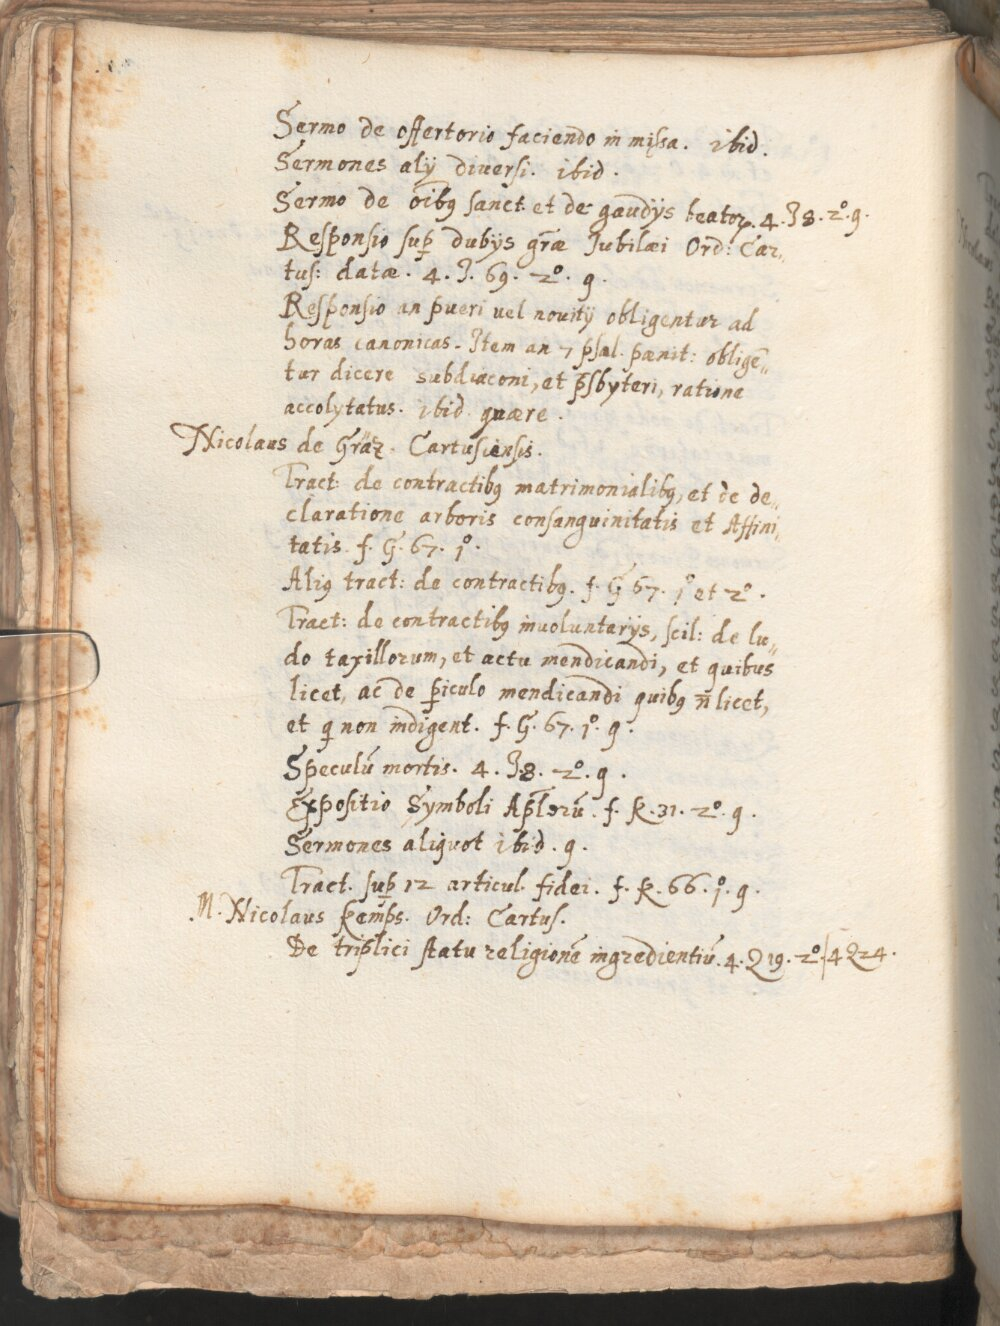 Sermo de offertorio faciendo in missa. ibid.
Sermones alij diversi. ibid.
Sermo de oībꝰ sanct. et de gaudijs beatoꝝ. 4. J 8. 2º. 9.
Responsio sup̄ dubijs gr̄æ Jubilæi Ord: Car„
tus: datæ. 4. J. 69. 2º. 9.
Responsio an pueri vel novitij obligentur ad
horas canonicas. Item an 7 psal. pænit: obligē„
tur dicere subdiaconi, et p̄sbyteri, ratione
accolytatus. ibid. quære.
Nicolaus de Gräz. Cartusiensis.
Tract: de contractibꝰ matrimonialibꝰ, et de de„
claratione arboris consanguinitatis et Affini„
tatis. f. G. 67. 1º.
Aliꝰ tract: de contractibꝰ. f. G 67. 1º et 2º.
Tract: de contractibꝰ involuntarijs, scil: de lu„
do taxillorum, et actu mendicandi, et quibus
licet, ac de ꝑiculo mendicandi quibꝰ n̄ licet,
et q non indigent. f. G. 67. 1º. 9.
Speculū mortis. 4. J. 8. 2º. 9.
Expositio Symboli Ap̄lorū. f. K. 31. 2º. 9.
Sermones aliquot ibid. 9.
Tract. sup̄ 12 articul. fidei. f. K. 66. 1º. 9.
M. Nicolaus Kemps. Ord: Cartus.
De triplici statu religionē ingredientiū. 4. Q 19. 2º. / 4 Q 24.